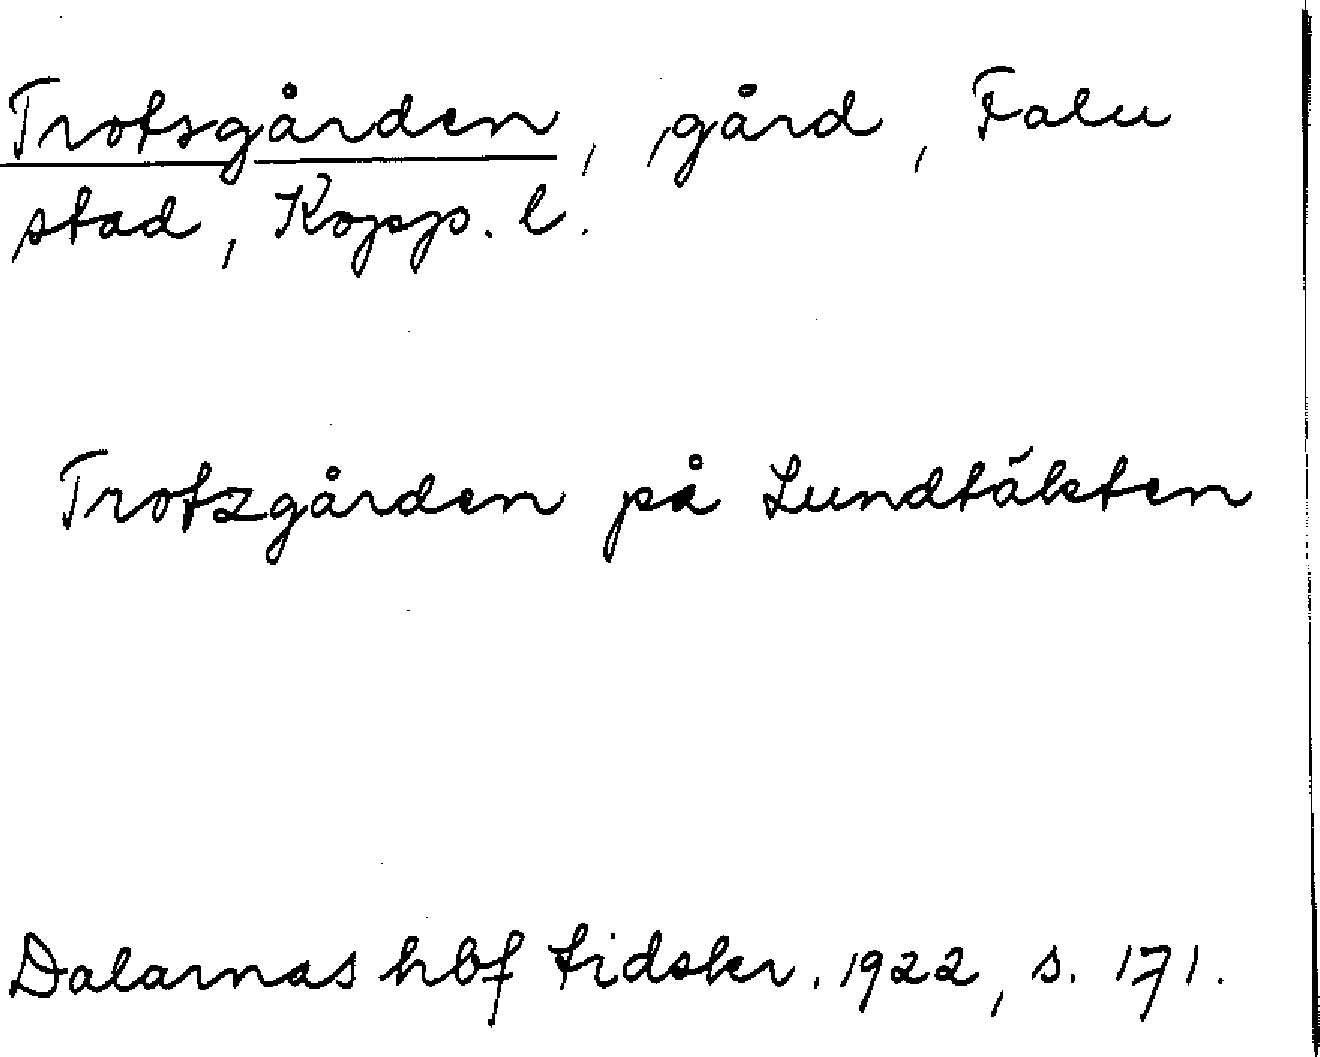 Trotsgården, gård, Falu
stad, Kopp. l.
Trotzgården på Lundtäkten
Dalarnas hbf tidskr. 1922, s. 171.